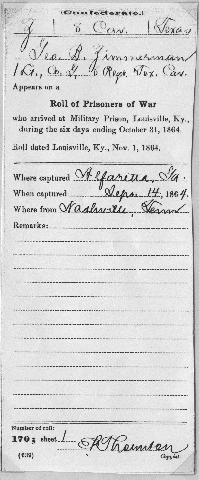 (Confederate.)
Z 8 Cav. Texas
Geo B. Zimmerman
1 Lt., Co. G, 8 Regt. Tex. Cav.
Appears on a
Roll of Prisoners of War
who arrived at Military Prison, Louisville, Ky.,
during the six days ending October 31, 1864.
Roll dated Louisville, Ky., Nov. 1, 1864.
Where captured Alfaretta, Ga.
When captured Sept 14, 1864.
Where from Nashville, Tenn
Remarks:
Number of roll:
170; sheet 1
R Thornton
(639) Copyist.